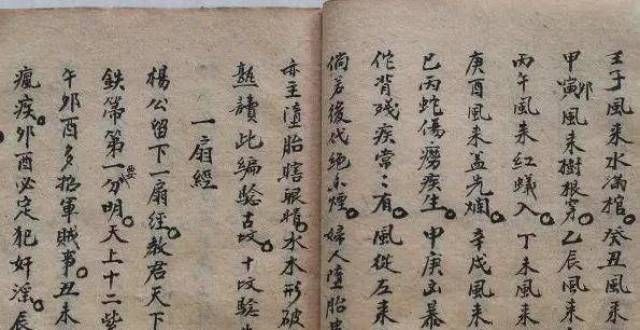 壬子風来水滿棺。癸丑風来
甲寅卯風来樹根穿。乙辰風来
丙午風来紅蟻入。丁未風来
庚酉風来盖先爛。辛戌風来
巳丙蛇傷癆疾生。申庚凶暴
作背殘疾當々有。風從左来
倘若後代絕禾煙。婦人墮胎
亦主墮胎瞎眼娘。水木形破
熟讀此編驗古坟。十坟驗
一扇經
楊公留下一扇經。教君天下
鉄箒第一要分明。天上十二
午卯酉多招軍賊事。丑未
瘋疾。卯酉必定犯奸淫。辰